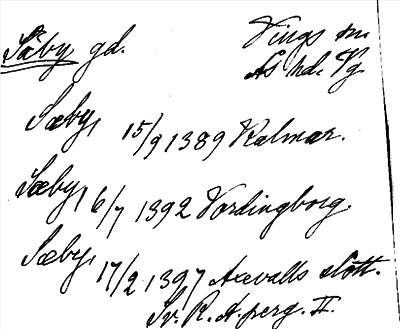 Säby, gd.
Vings sn.
Ås hd. Vg.
Sæby, 15/9 1389 Kalmar.
Sæby, 16/7 1392 Vordingborg.
Sæby, 17/2 1397 Axevalls slott.
Sv. R. A. perg. II.